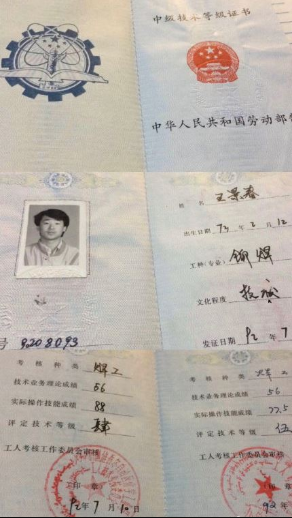 中级技术等级证书
中华人民共和国劳动部
姓名 王景春
出生日期 73 年 2 月 12
工种(专业) 铆焊
文化程度
发证日期 92 年 7
号 9208093
考核种类 焊工
技术业务理论成绩 56
实际操作技能成绩 88
评定技术等级 肆
工人考核工作委员会审核
印章
92 年 7 月 10 日
考核种类
技术业务理论成绩 56
实际操作技能成绩 77.5
评定技术等级 伍
工人考核工作委员会审核
印章
92 年